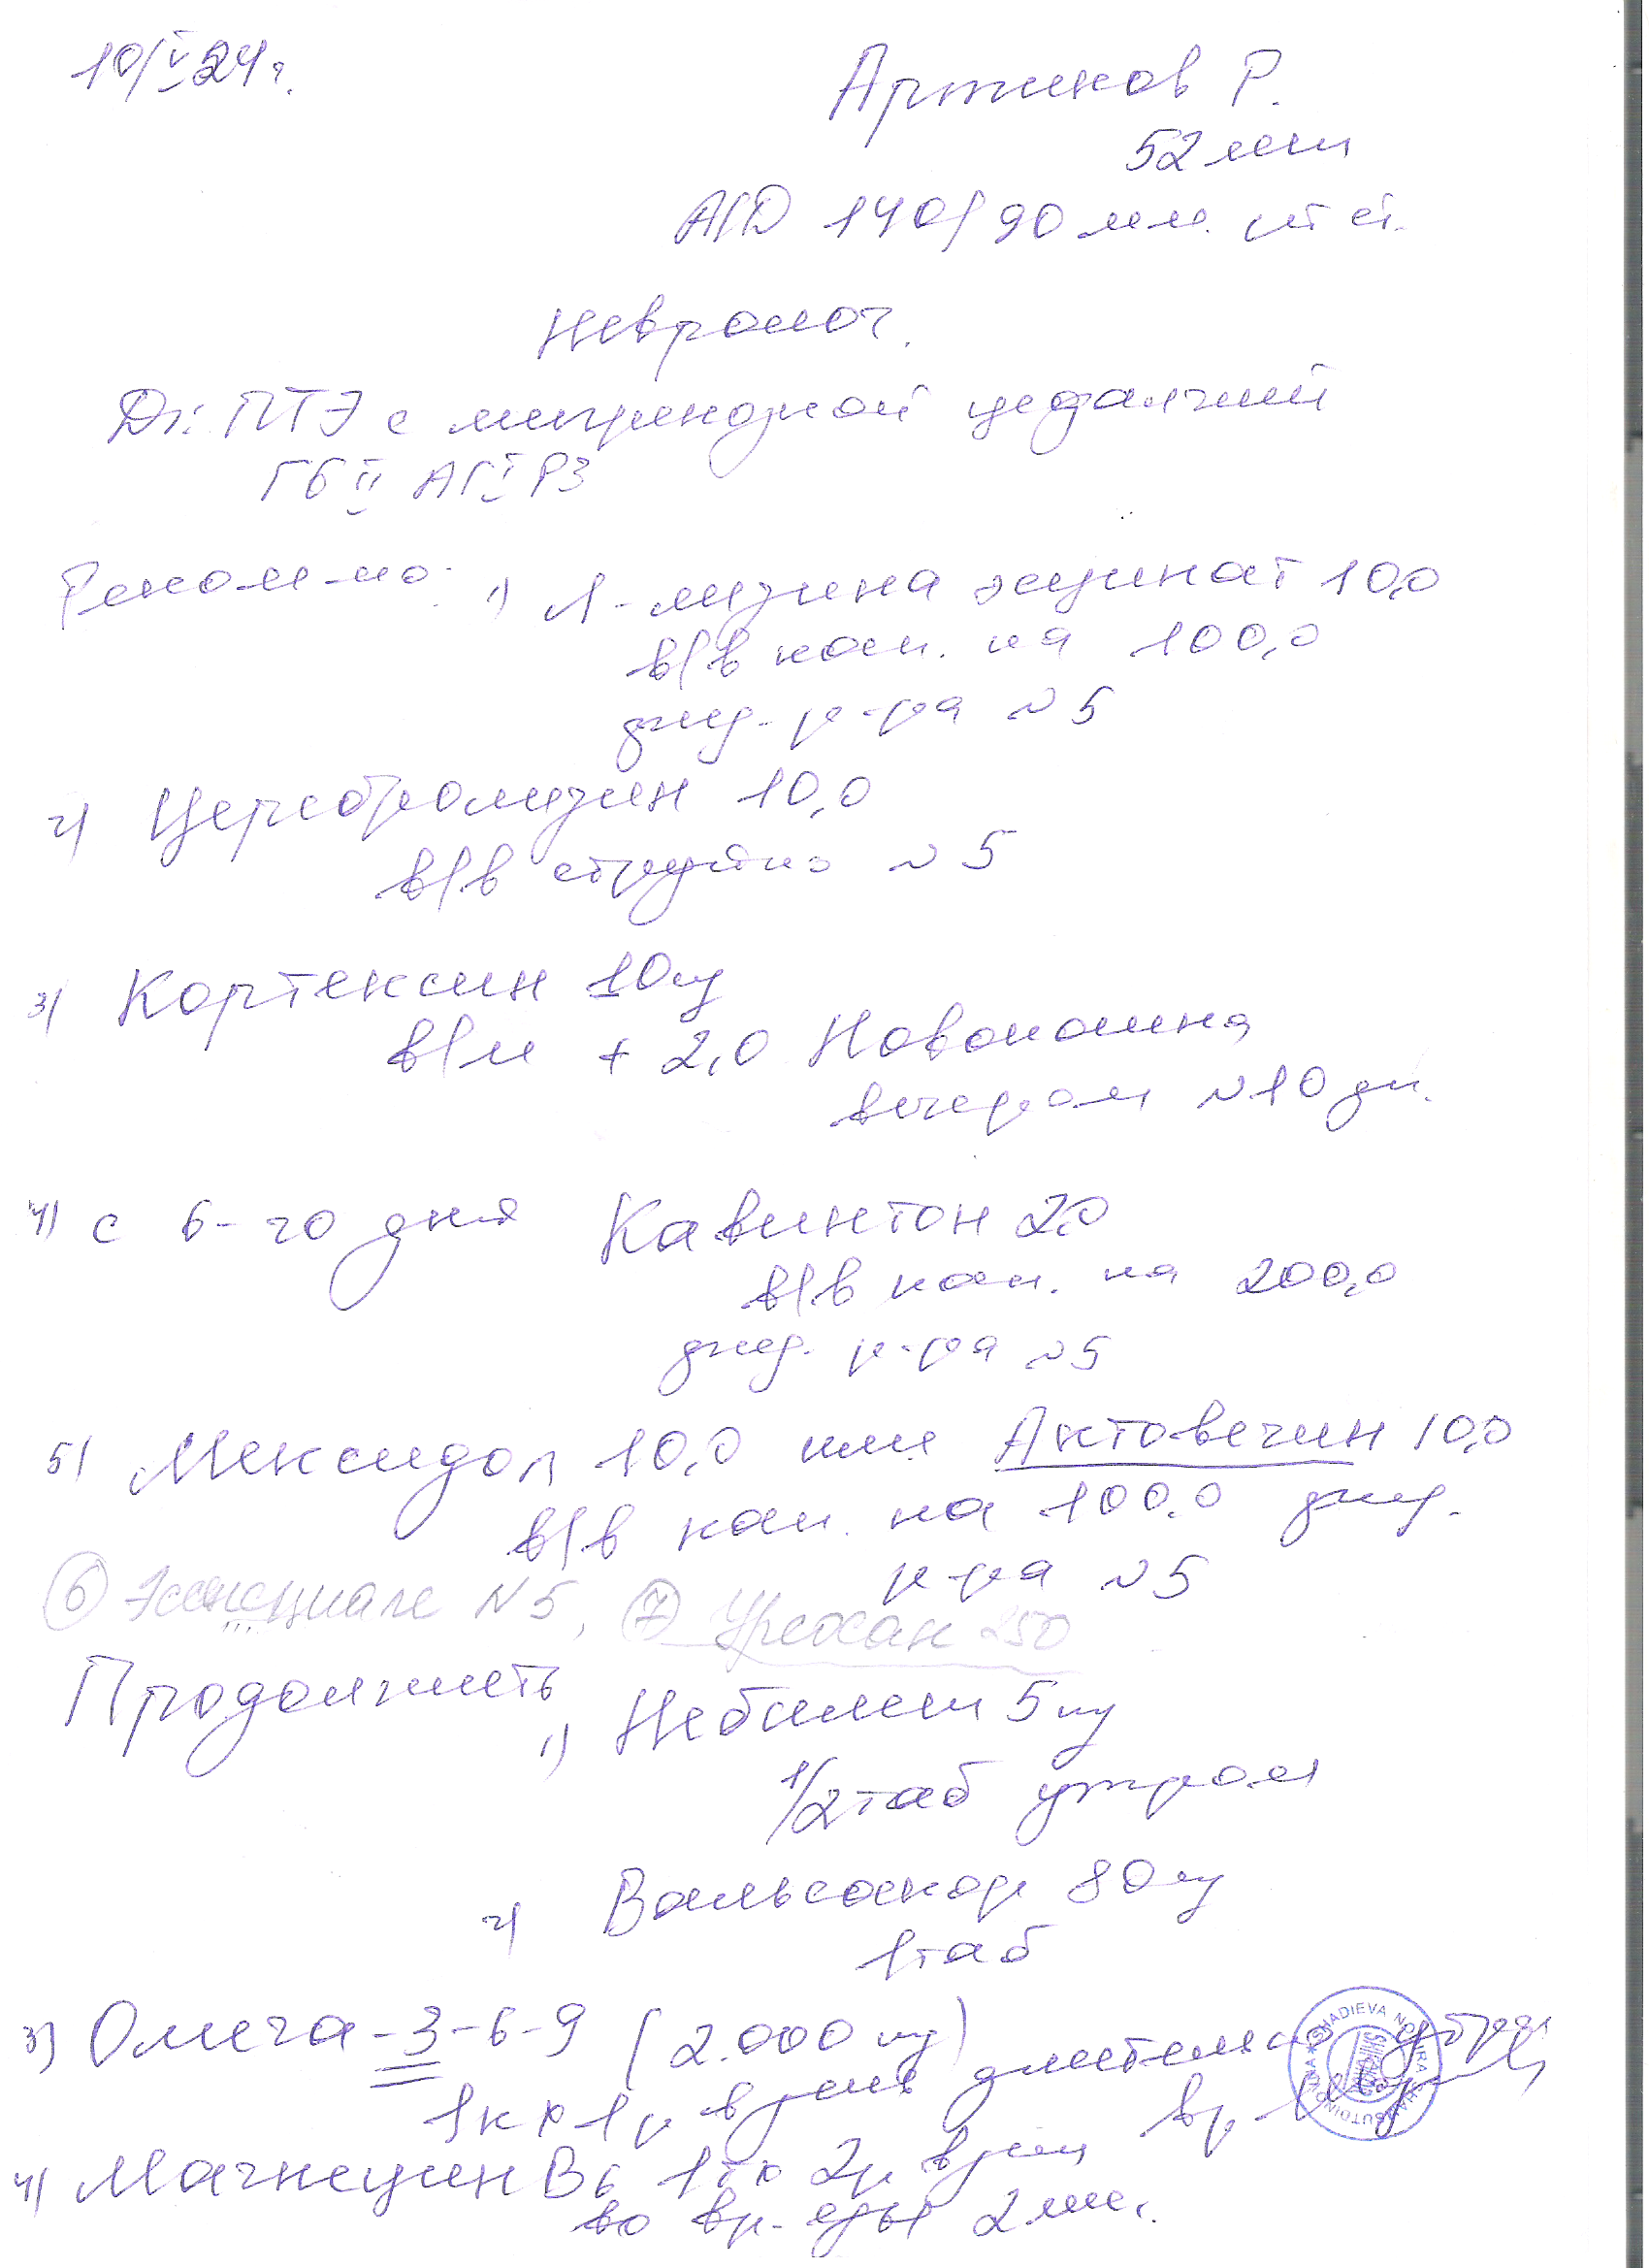 10/V 24 г.
Артиков Р.
52 лет
А/Д 140/90 мм. рт ст.
Невролог.
Ds: ПТЭ с мигренозной цефалгией
ГБ II АГ I Р3
Реком-но: 1) Л-лизина эсцинат 10,0
в/в кап. на 100,0
физ. р-ра N 5
2) Церебролизин 10,0
в/в струйно N 5
3) Кортексин 10 мг
в/м + 2,0 Новокаина
вечером N 10 дн.
4) с 6-го дня Кавинтон 2,0
в/в кап. на 200,0
физ. р-ра N 5
5) Мексидол 10,0 или Актовегин 10,0
в/в кап. на 100,0 физ.
р-ра N 5
6 Эссенциале N 5, 7 Урсохан 250
Продолжить
1) Небилет 5 мг
1/2 таб утром
2) Вальсакор 80 мг
1 таб
3) Омега-3-6-9 (2.000 мг) длительно
1 к х 1 р в день
4) Магнецин В6 1т х 2р в день
во вр. еды 2 мес.
SHADIEVA NODIRA